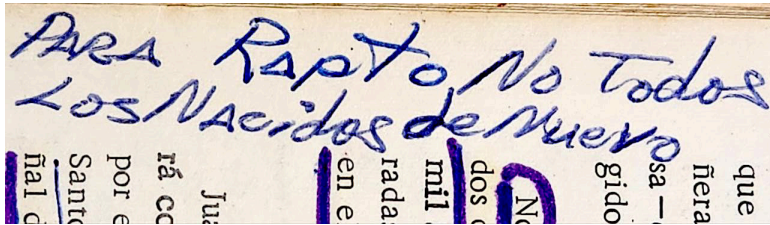 PARA Rapto No Todos
Los Nacidos de Nuevo
que
ñera
sa—
gido
No
dos
mil
radas
en e
Jua
rá co
por e
Santo
ñal d